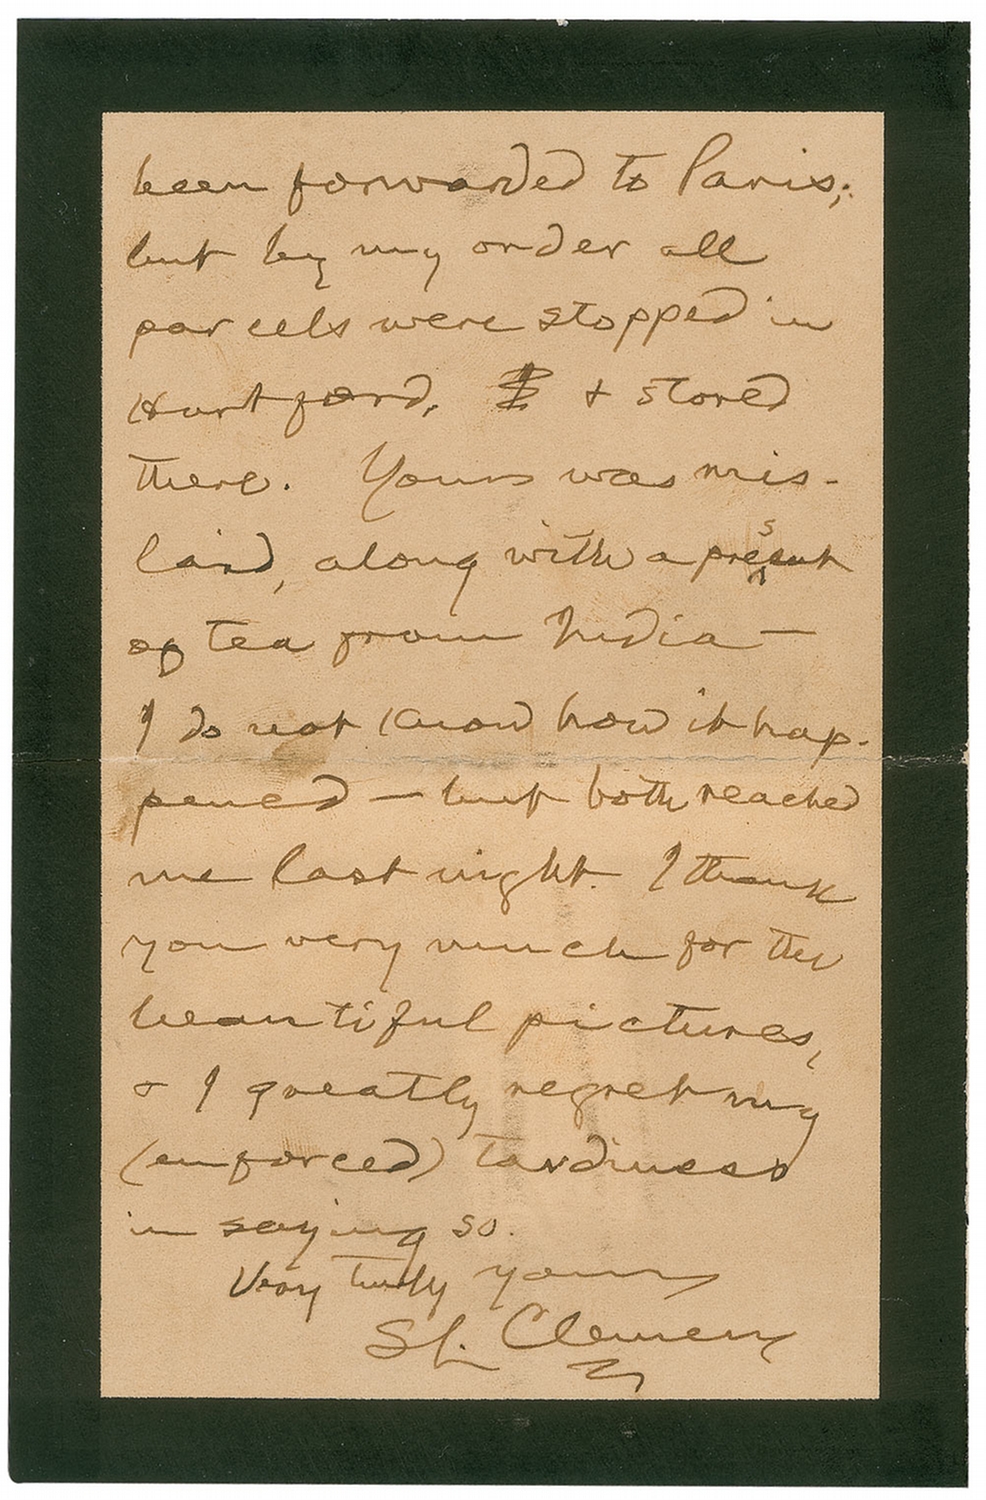 been forwarded to Paris;
but by my order all
parcels were stopped in
Hartford, & stored
there. Yours was mis-
laid, along with a present
of tea from India —
I do not know how it hap-
pened — but both reached
me last night. I thank
you very much for the
beautiful pictures,
& I greatly regret my
(enforced) tardiness
in saying so.
Very truly yours
SL. Clemens